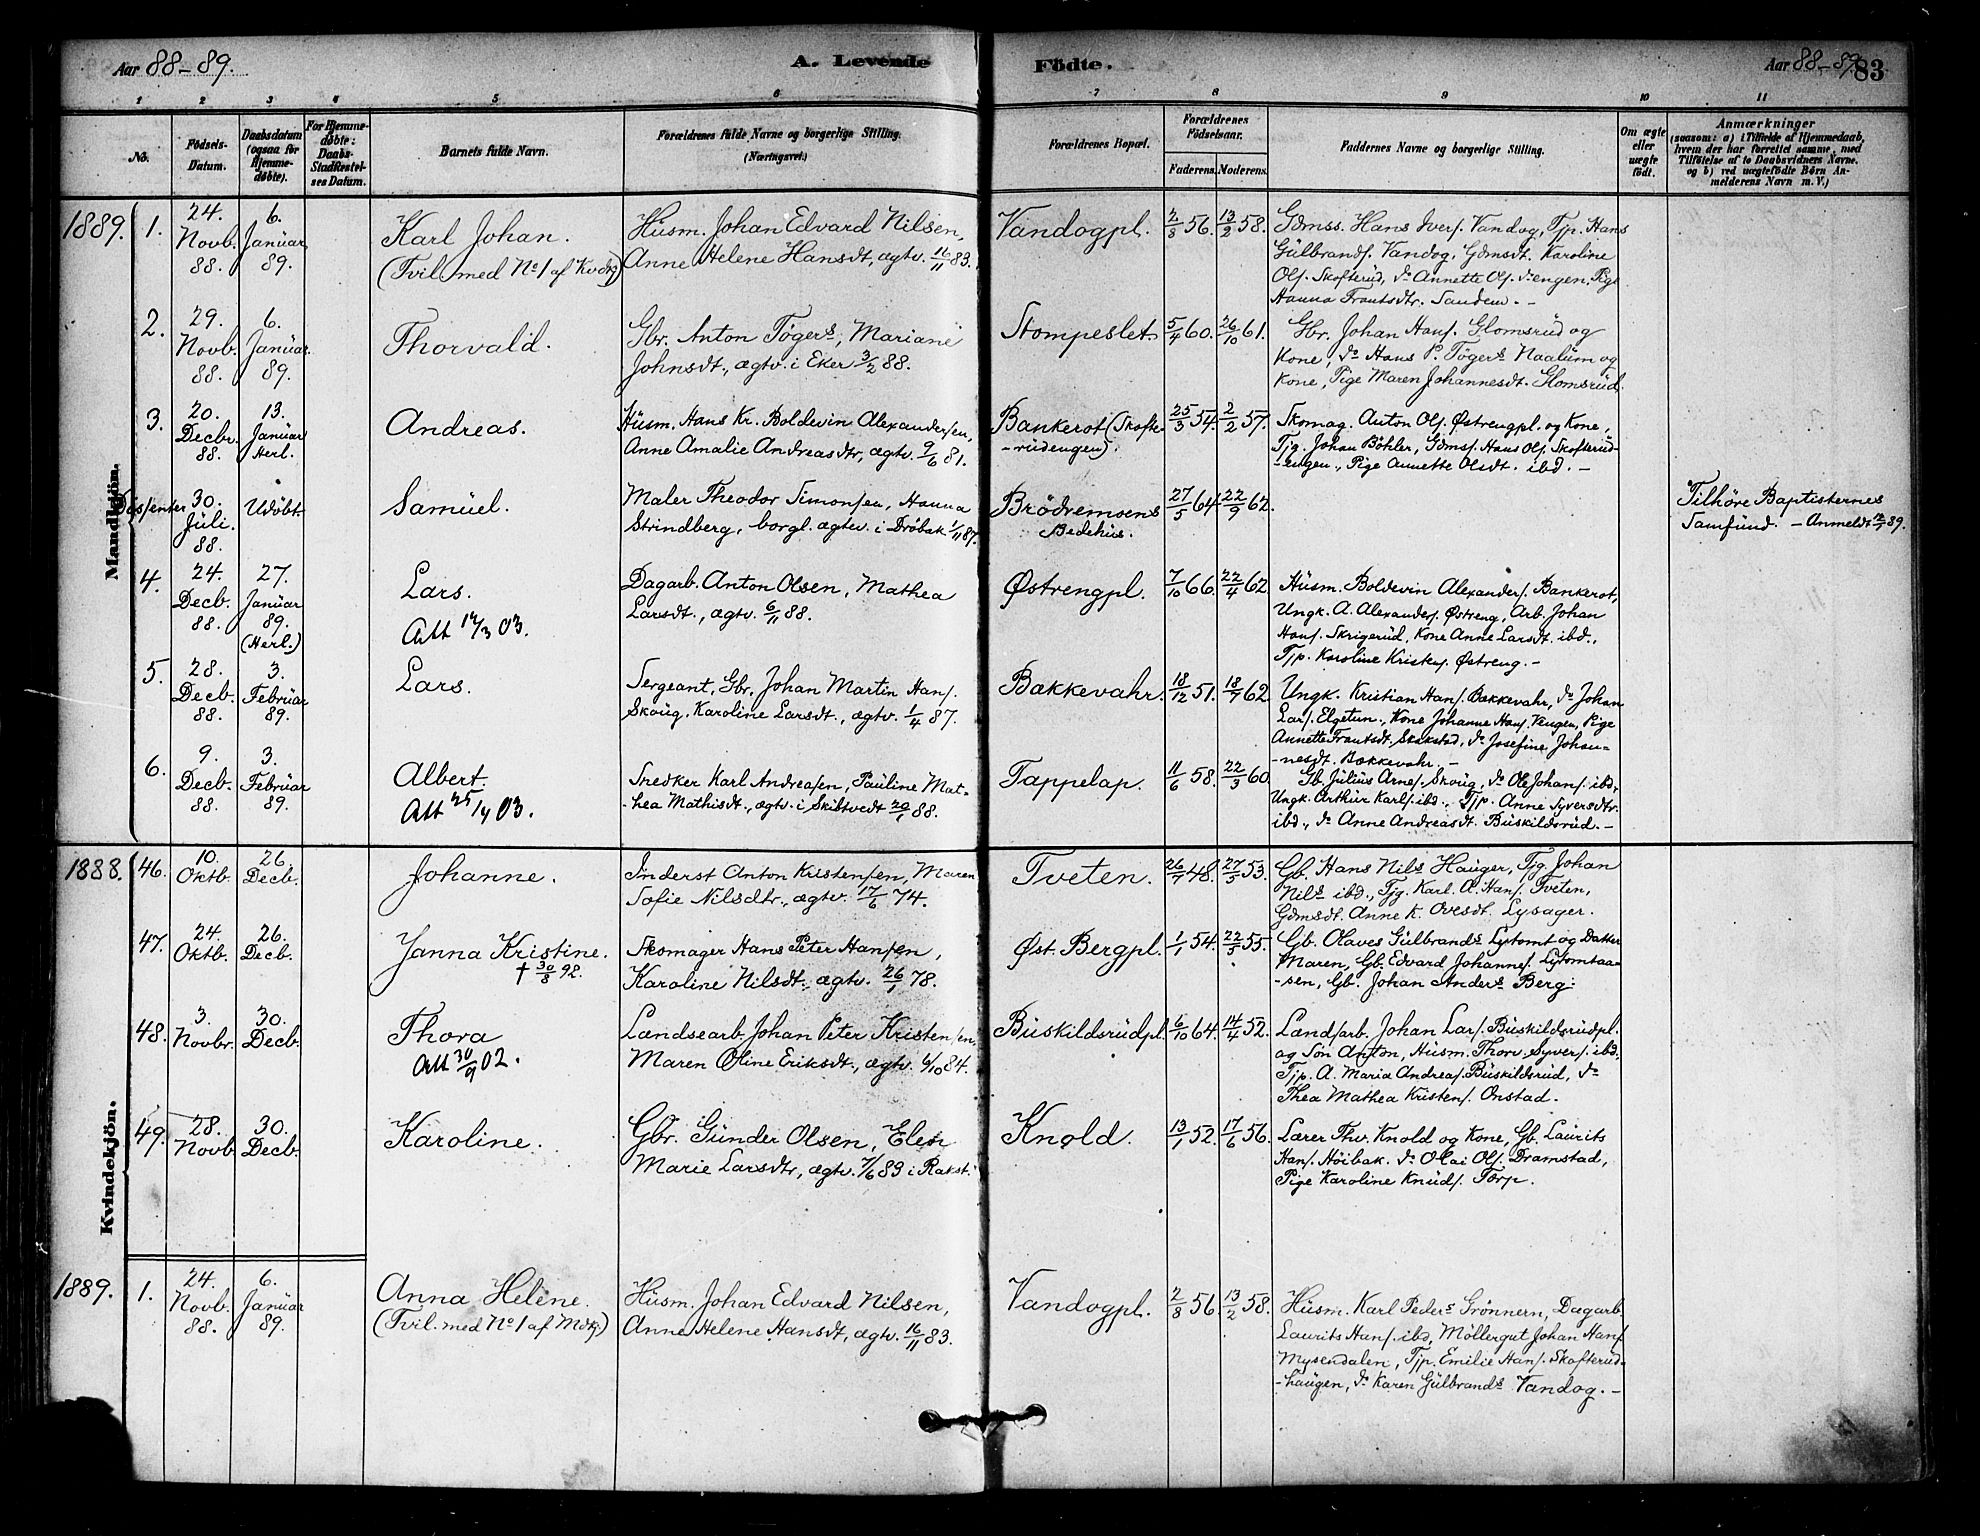 Aar 88-89.
A. Levende
Födte.
Aar 88-89.
83
1 2 3 4 5 6 7 8 9 10 11
No.
Födsels-
Datum.
Daabsdatum
(ogsaa for
Hjemme-
døbte).
For Hjemme-
døbte:
Daabs-
Stadfæstel-
ses Datum.
Barnets fulde Navn.
Forældrenes fulde Navne og borgerlige Stilling.
(Næringsvei.)
Forældrenes Bopæl.
Forældrenes
Födselsaar.
Faderens. Moderens.
Faddernes Navne og borgerlige Stilling.
Om ægte
eller
uægte
født.
Anmærkninger
(saasom: a) i Tilfælde af Hjemmedaab,
hvem der har forrettet samme, med
Tilføielse af to Daabsvidners Navne,
og b) ved uægtefødte Børn An-
melderens Navn m. V.)
Mandkjön.
1889. 1.
24.
Novb.
88.
6.
Januar
89.
Karl Johan.
(Tvil. med No 1 af Kvdkj)
Husm. Johan Edvard Nilsen,
Anne Helene Hansdt, ægtv. 16/11 83.
Vandogpl.
2/8 56. 13/2 58.
Gdmss. Hans Ivers. Vandog, Tjp. Hans
Gulbrands. Vandog, Gdmsdt. Karoline
Ols. Skofterud, do Annette Ols. do engen, Pige
Hanna Frantsdtr. Sandem. -
2.
29.
Novb.
88.
6.
Januar
89.
Thorvald.
Gbr. Anton Tögers, Mariane
Johnsdt., ægtv. i Eker 3/2 88.
Stompeslet.
5/4 60. 26/10 61.
Gbr. Johan Hans. Glomsrud og
Kone, do Hans P. Tögers Naalum og
Kone, Pige Maren Johannesdt. Glomsrud.
3.
20.
Decbr.
88.
13.
Januar
Herl.
Andreas.
Husm. Hans Kr. Boldevin Alexandersen,
Anne Amalie Andreasdtr, ægtv. 9/6 81.
Bankerot (Skofte-
-rudengen).
25/3 54. 2/2 57.
Skomag. Anton Ols. Østrengpl. og Kone,
Tjg. Johan Böhler, Gdmss. Hans Ols. Skofterud-
-engen, Pige Annette Olsdt. ibd. -
Dissenter
30.
Juli.
88.
Udöbt.
Samuel.
Maler Theodor Simonsen, Hanna
Strindberg, borgl. ægtv. i Dröbak 1/11 87.
Brödremsens
Bedehus.
27/5 64. 22/9 62.
Tilhöre Baptisternes
Samfund. - Anmeldt 12/1 89.
4.
24.
Decb.
88.
27.
Januar
89.
(Herl.)
Lars.
Att 17/3 03.
Dagarb. Anton Olsen, Mathea
Larsdt., ægtv. 6/11 88.
Østrengpl.
7/10 66. 22/4 62.
Husm. Boldevin Alexanders. Bankerot,
Ungk. A. Alexanders. Østreng, Arb. Johan
Hans. Skrigerud, Kone Anne Larsdt. ibd.,
Tjp. Karoline Kristens. Østreng. -
5.
28.
Decb.
88.
3.
Februar
89.
Lars.
Sergeant, Gbr. Johan Martin Hans.
Skoug, Karoline Larsdt., ægtv. 1/4 87.
Bakkevahr.
18/12 51. 18/7 62.
Ungk. Kristian Hans. Bakkevahr, do Johan
Lars. Elgetun., Kone Johanne Hans. Vengen, Pige
Annette Frantsdt. Skakstad, do Josefine Johan-
-nesdt. Bakkevahr. -
6.
9.
Decb.
88.
3.
Februar
89.
Albert.
Att 25/4 03.
Snedker Karl Andreasen, Pauline Mat-
-hea Mathisdt., ægtv. i Skibtvedt 20/1 88.
Tappelap.
11/6 58. 22/3 60.
Gb. Julius Arnes. Skoug, do Ole Johans. ibd,
Ungk. Arthur Karls. ibd., Tjp. Anne Syversdtr.
ibd., do Anne Andreasdt. Buskildsrud. -
Kvindekjön.
1888. 46.
10.
Oktb.
26.
Decb.
Johanne.
Inderst Anton Kristensen, Maren
Sofie Nilsdtr., ægtv. 17/6 74.
Tveten.
26/7 48. 27/5 53.
Gb. Hans Nils Hauger, Tjg Johan
Nils ibd., Tjg. Karl. A. Hans. Tveten,
Gdmsdt. Anne K. Ovesdt. Lysager.
47.
24.
Oktb.
26.
Decb.
Janna Kristine.
† 30/8 92.
Skomager Hans Peter Hansen,
Karoline Nilsdt., ægtv. 26/1 78.
Øst. Bergpl.
1/1 54. 22/5 55.
Gb. Olaves Gulbrands Lytomt og Datter
Maren, Gb. Edvard Johannes. Lytomtaa-
-sen, Gb. Johan Anders Berg.
48.
3.
Novbr.
30.
Decb.
Thora
Att 30/9 02.
Landsearb. Johan Peter Kristensen,
Maren Oline Eriksdt., ægtv. 6/10 84.
Buskildsrudpl.
6/10 64. 14/4 52.
Landsarb. Johan Lars. Buskildsrudpl.
og Søn Anton, Husm. Thorv. Syvers. ibd.
Tjp. A. Maria Andreas. Buskildsrud, do
Thea Mathea Kristens. Onstad.
49.
28.
Novb
30.
Decb.
Karoline.
Gbr. Gunder Olsen, Elen
Marie Larsdtr, ægtv. 7/6 83 i Rakst.
Knold.
13/1 52. 17/6 56.
Lærer Thv. Knold og Kone, Gb. Laurits
Hans. Höibak. do Olai Ols. Dramstad,
Pige Karoline Knuds. Torp.
1889. 1.
24.
Novb.
88.
6.
Januar
89.
Anna Helene.
(Tvil. med No 1 af Mdkj.)
Husm. Johan Edvard Nilsen,
Anne Helene Hansdt, ægtv. 16/11 83.
Vandogpl.
2/8 56. 13/2 58.
Husm. Karl Peders Grönnern, Dagarb.
Laurits Hans. ibd, Möllergut Johan Hans
Mysendalen, Tjp. Emilie Hans. Skofterud-
-haugen, do Karen Gulbrands Vandog. -